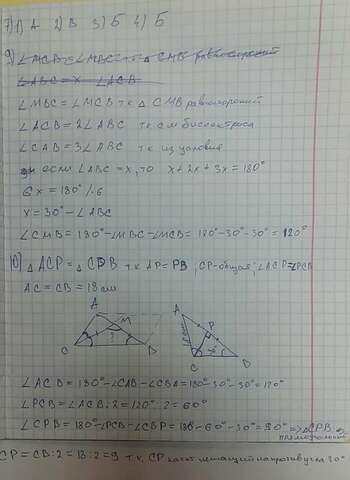 7) 1) А 2) В 3) Б 4) Б
9) ∠MCB = ∠MBC т.к △ CMB равнобедренный
∠ABC = x ∠ACB
∠MBC = ∠MCB т.к △ CMB равнобедренный
∠ACB = 2∠ABC т.к см биссектриса
∠CAB = 3∠ABC т.к из условия
если ∠ABC = x, то x + 2x + 3x = 180°
6x = 180° /:6
x = 30° - ∠ABC
∠CMB = 180° - ∠MBC - ∠MCB = 180° - 30° - 30° = 120°
10) △ ACP = △ CPB т.к AP = PB, CP - общая, ∠ACP = ∠PCB
AC = CB = 18 см
A M C B
A P C B
∠ACB = 180° - ∠CAB - ∠CBA = 180° - 30° - 30° = 120°
∠PCB = ∠ACB : 2 = 120° : 2 = 60°
∠CPB = 180° - ∠PCB - ∠CBP = 180° - 60° - 30° = 90° => △CPB -
прямоугольный
CP = CB : 2 = 18 : 2 = 9 т.к. CP катет лежащий напротив угла 30°